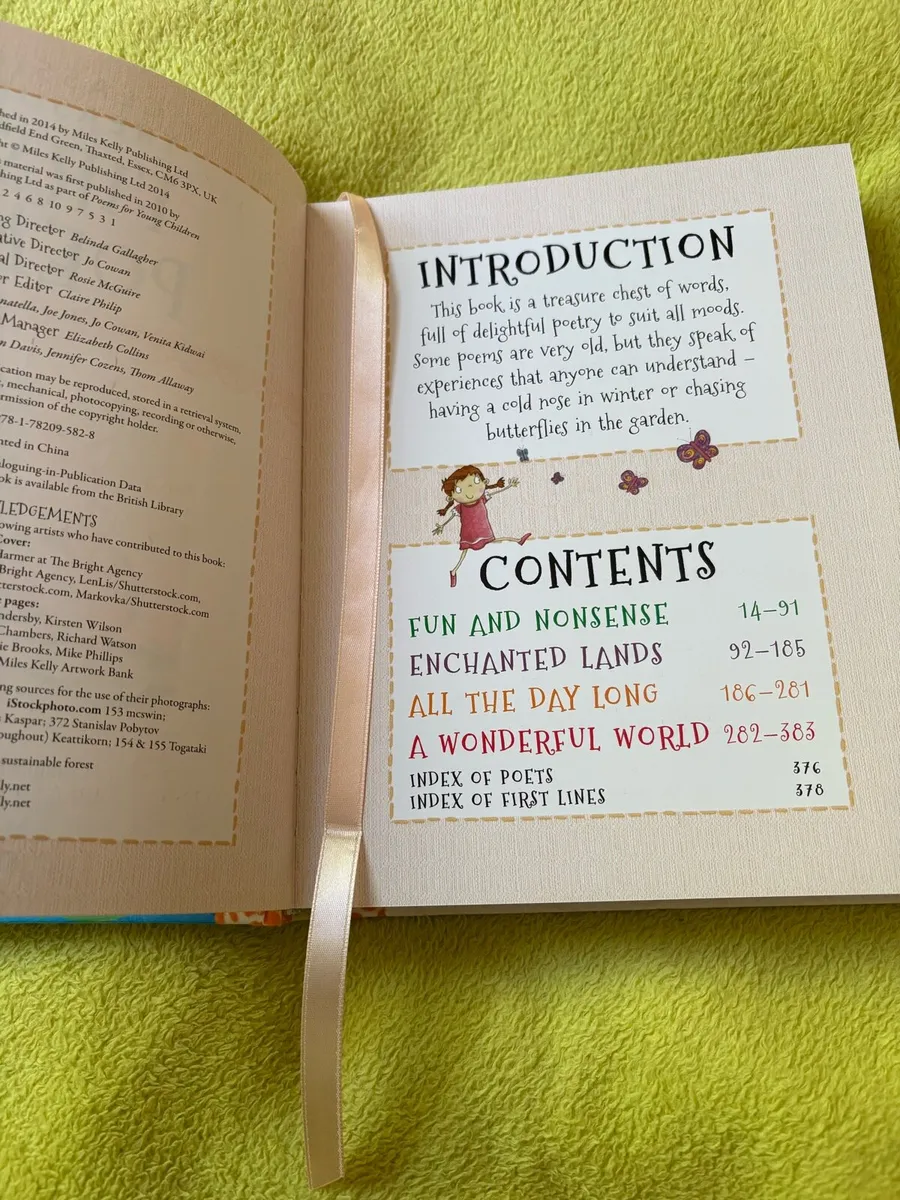 hed in 2014 by Miles Kelly Publishing Ltd
dfield End Green, Thaxted, Essex, CM6 3PX, UK
ht © Miles Kelly Publishing Ltd 2014
material was first published in 2010 by
hing Ltd as part of Poems for Young Children
2 4 6 8 10 9 7 5 3 1
ng Director Belinda Gallagher
ative Director Jo Cowan
al Director Rosie McGuire
r Editor Claire Philip
natella, Joe Jones, Jo Cowan, Venita Kidwai
Manager Elizabeth Collins
n Davis, Jennifer Cozens, Thom Allaway
cation may be reproduced, stored in a retrieval system,
, mechanical, photocopying, recording or otherwise,
ermission of the copyright holder.
78-1-78209-582-8
nted in China
aloguing-in-Publication Data
ok is available from the British Library
LEDGEMENTS
owing artists who have contributed to this book:
Cover:
Harmer at The Bright Agency
Bright Agency, LenLis/Shutterstock.com,
tterstock.com, Markovka/Shutterstock.com
pages:
ndersby, Kirsten Wilson
Chambers, Richard Watson
ie Brooks, Mike Phillips
Miles Kelly Artwork Bank
ng sources for the use of their photographs:
iStockphoto.com 153 mcswin;
Kaspar; 372 Stanislav Pobytov
oughout) Keattikorn; 154 & 155 Togataki
sustainable forest
ly.net
ly.net
INTRODUCTION
This book is a treasure chest of words,
full of delightful poetry to suit all moods.
Some poems are very old, but they speak of
experiences that anyone can understand –
having a cold nose in winter or chasing
butterflies in the garden.
CONTENTS
FUN AND NONSENSE 14–91
ENCHANTED LANDS 92–185
ALL THE DAY LONG 186–281
A WONDERFUL WORLD 282–383
INDEX OF POETS 376
INDEX OF FIRST LINES 378